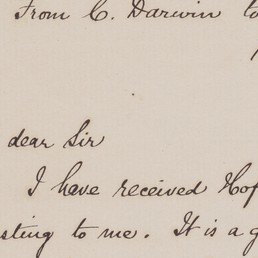 From C. Darwin to
dear Sir
I have received Hof
sting to me. It is a g